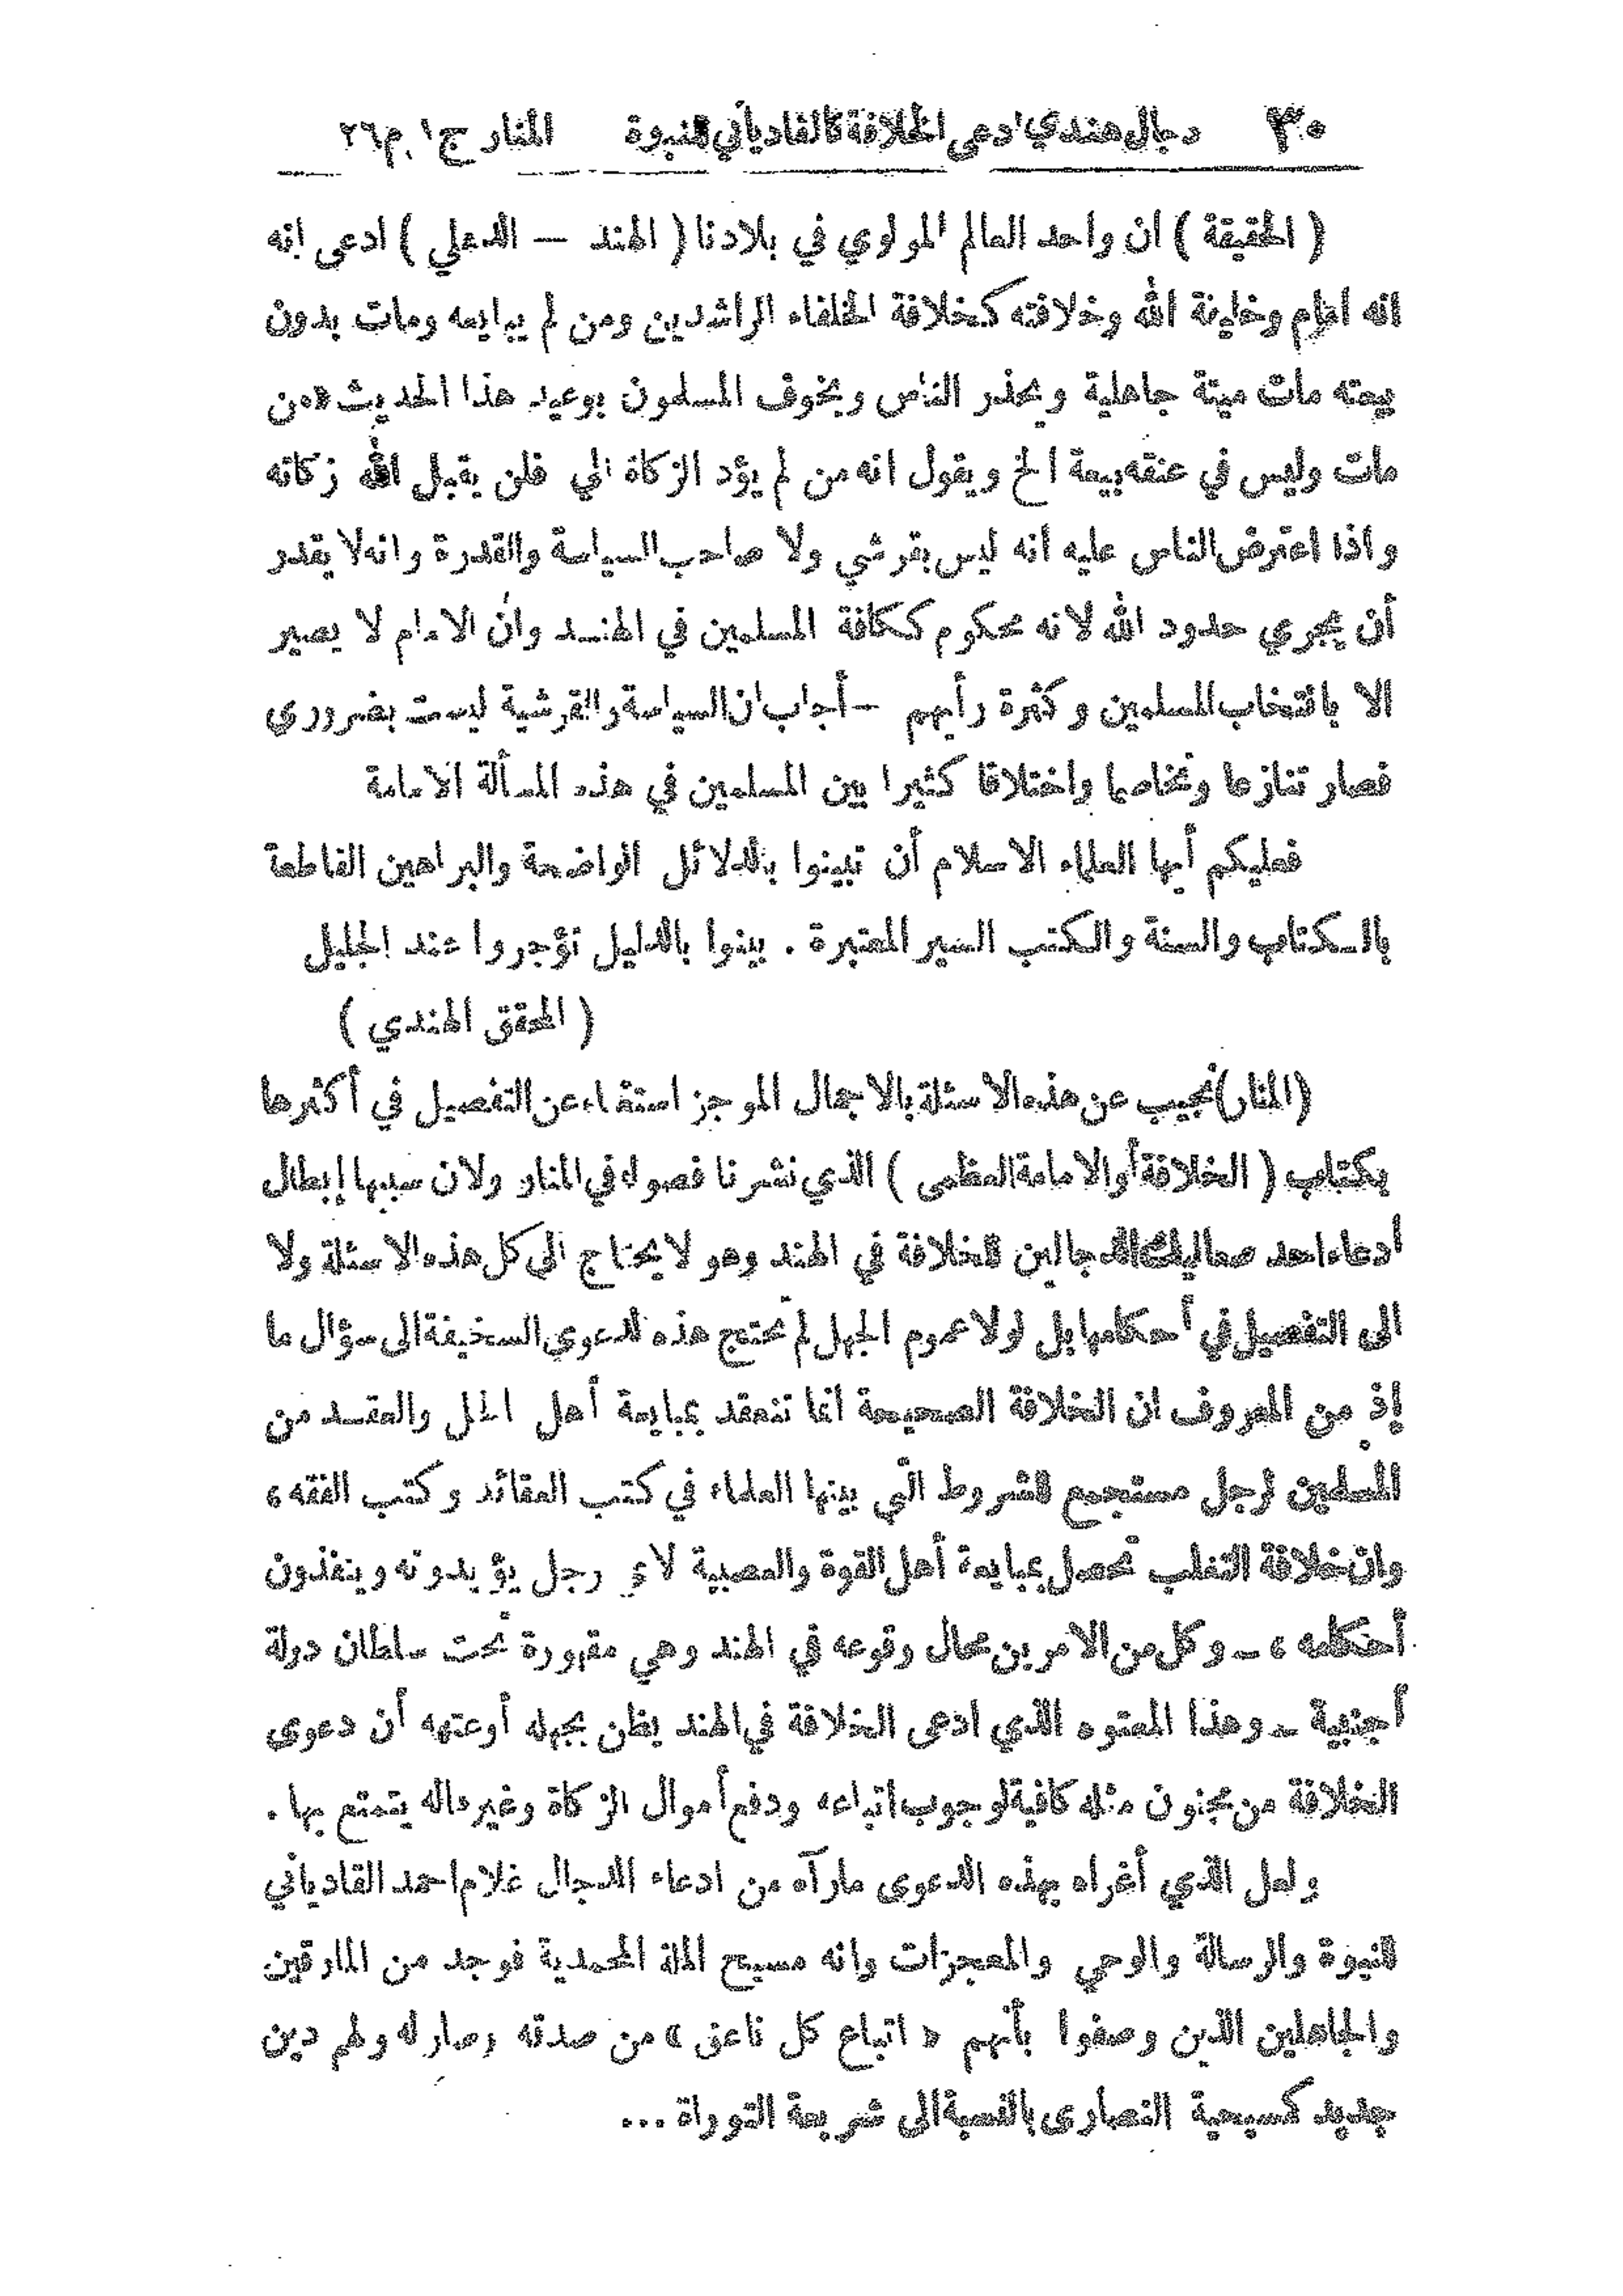 ٣٠ دجال هندي ادعى الخلافة كالقادياني للنبوة المنار ج١ م٢٦
( الحقيقة ) ان واحد العالم المولوي في بلادنا ( الهند — الدهلي ) ادعى انه
انه امام وخليفة الله وخلافته كخلافة الخلفاء الراشدين ومن لم يبايعه ومات بدون
بيعته مات ميتة جاهلية ويحذر الناس ويخوف المسلمون بوعيد هذا الحديث «من
مات وليس في عنقه بيعة الخ ويقول انه من لم يؤد الزكاة الي فلن يقبل الله زكاته
واذا اعترض الناس عليه انه ليس بقرشي ولا صاحب السياسة والقدرة وانه لا يقدر
أن يجري حدود الله لانه محكوم ككافة المسلمين في الهند وان الامام لا يصير
الا بانتخاب المسلمين وكثرة رأيهم — أجاب ان السياسة والقرشية ليست بضروري
فصار تنازعا وتخاصما واختلافا كثيرا بين المسلمين في هذه المسألة الامامة
فعليكم أيها العلماء الاسلام أن تبينوا بالدلائل الواضحة والبراهين القاطعة
بالكتاب والسنة والكتب السير المعتبرة . بينوا بالدليل تؤجروا عند الجليل
( المحقق الهندي )
(المنار) نجيب عن هذه الاسئلة بالاجمال الموجز استغناء عن التفصيل في أكثرها
بكتاب ( الخلافة أو الامامة العظمى ) الذي نشرنا فصوله في المنار ولان سببها إبطال
ادعاء احد صعاليك الدجالين للخلافة في الهند وهو لا يحتاج الى كل هذه الاسئلة ولا
الى التفصيل في أحكامها بل لولا عموم الجهل لم تحتج هذه الدعوى السخيفة الى سؤال ما
إذ من المعروف ان الخلافة الصحيحة انما تنعقد بمبايعة أهل الحل والعقد من
المسلمين لرجل مستجمع للشروط التي بينها العلماء في كتب العقائد وكتب الفقه ،
وان خلافة التغلب تحصل بمبايعة أهل القوة والعصبية لاي رجل يؤيدونه وينفذون
أحكامه ، ــ وكل من الامرين محال وقوعه في الهند وهي مقهورة تحت سلطان دولة
أجنبية ــ وهذا المعتوه الذي ادعى الخلافة في الهند يظن بجهله أو عتهه أن دعوى
الخلافة من مجنون مثله كافية لوجوب اتباعه ودفع أموال الزكاة وغيرها له يتمتع بها .
ولعل الذي أغراه بهذه الدعوى ما رآه من ادعاء الدجال غلام احمد القادياني
للنبوة والرسالة والوحي والمعجزات وانه مسيح الملة المحمدية فوجد من المارقين
والجاهلين الذين وصفوا بأنهم « اتباع كل ناعق » من صدقه وصار له ولهم دين
جديد كمسيحية النصارى بالنسبة الى شريعة التوراة ...